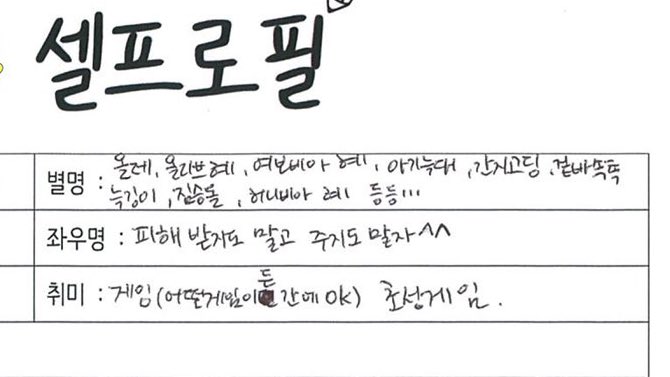 셀프로필
별명 : 올레, 올리브혜, 여보비아 혜, 아기늑대, 간지고딩, 겉바속촉
늑깅이, 짐승돌, 허니비아 혜 등등...
좌우명 : 피해 받지도 말고 주지도 말자^^
취미 : 게임(어떤게임이든 간에 OK) 초성게임.